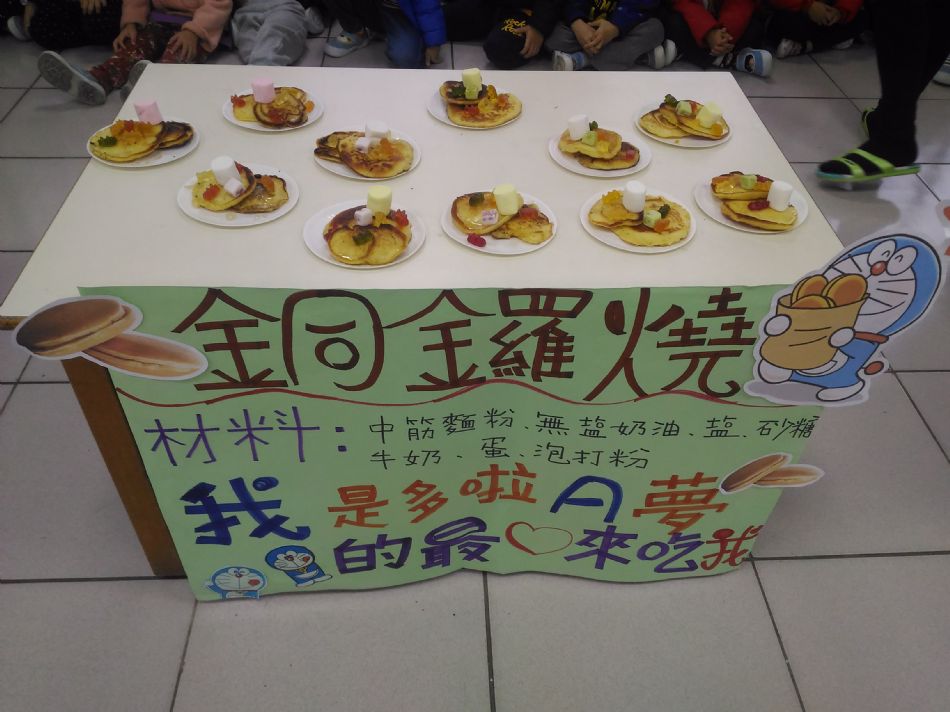 銅鑼燒
材料:中筋麵粉、無塩奶油、塩、砂糖
牛奶、蛋、泡打粉
我是多啦A夢
的最♡來吃我